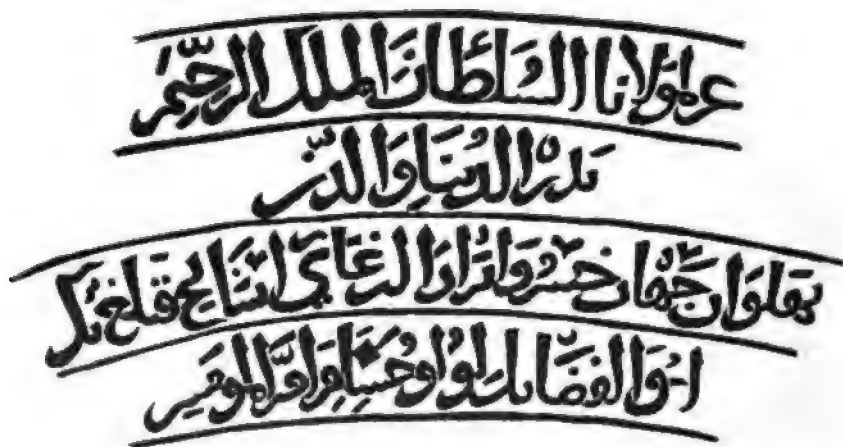 عز لمولانا السلطان الملك الرحيم
بدر الدنيا والدين
بهلوان جهان خسرو ايران الب غازي اينانج قتلغ بك
ابو الفضائل لولو حسام امير المومنين